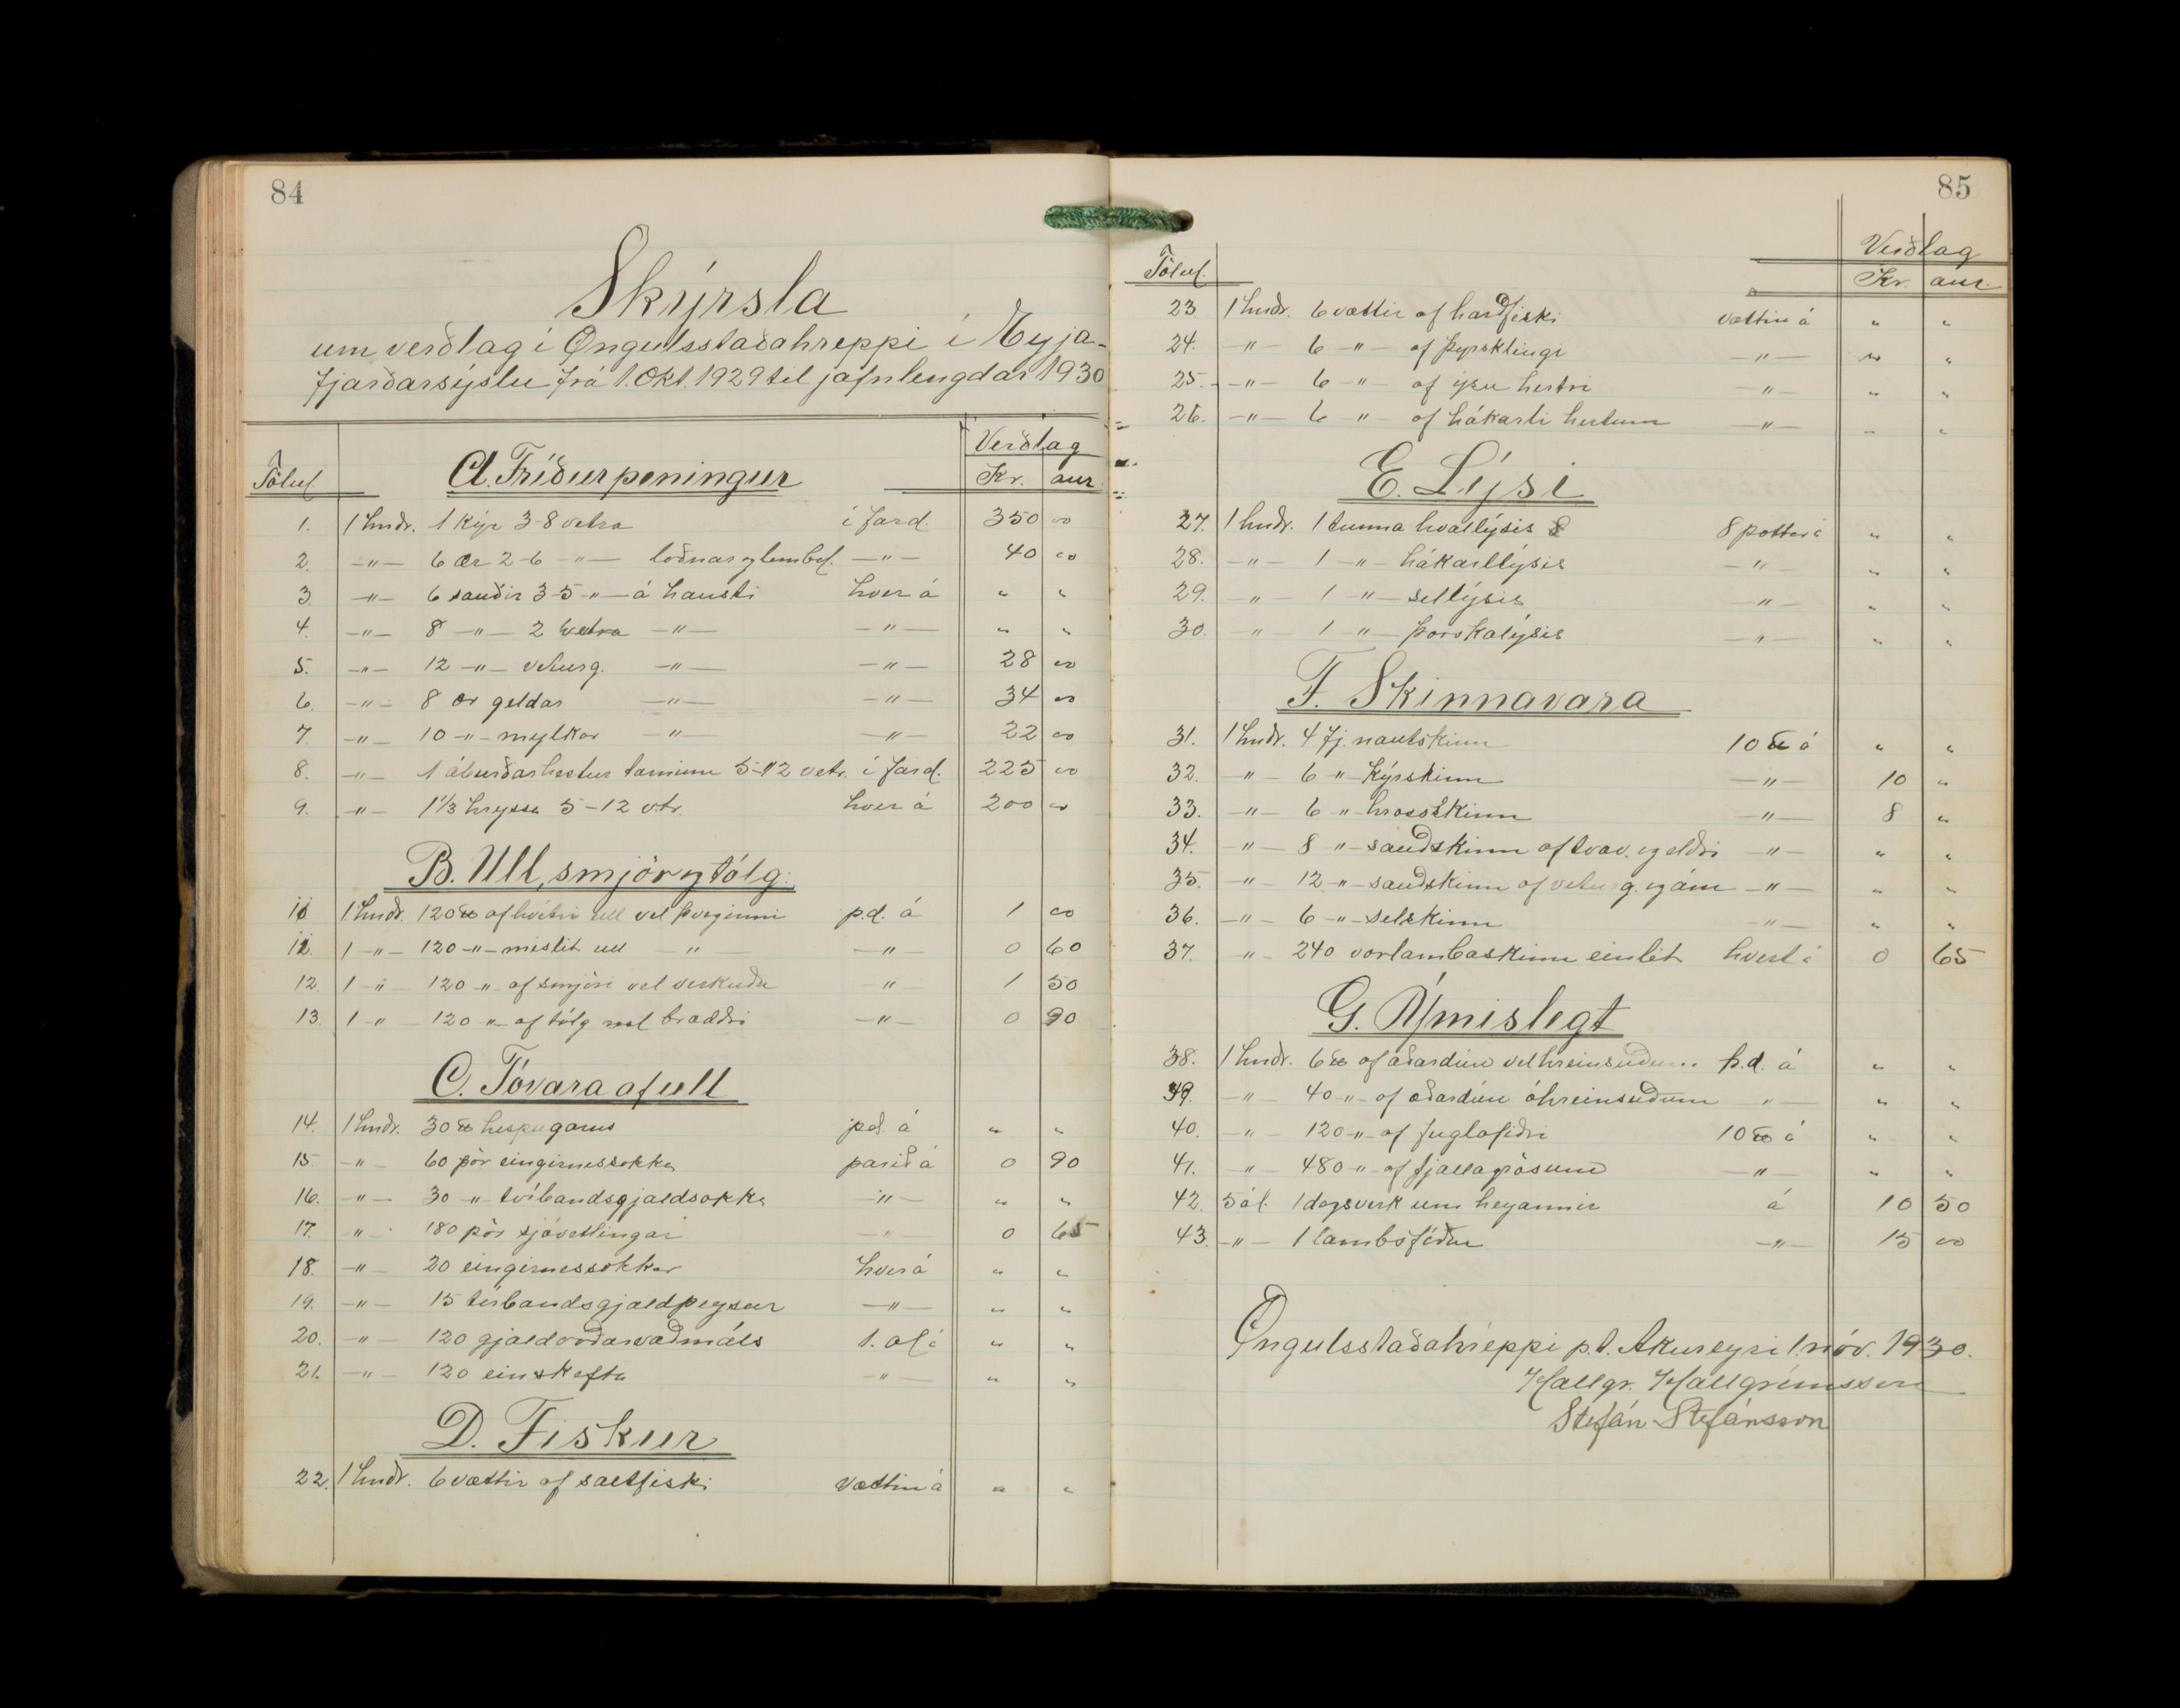 84
Skýrsla
um verðlag í Öngulsstaðahreppi í Eyja-
fjarðarsýslu frá 1. Okt. 1929 til jafnlengdar 1930
Tölul. A. Fríður peningur Verðlag
Kr. aur.
1. 1 hndr. 1 kýr 3-8 vetra í fard. 350 00
2. -"- 6 ær 2-6 -"- loðnar og lembd. -"- 40 00
3. -"- 6 sauðir 3-5 -"- á hausti hver á " "
4. -"- 8 -"- 2 vetra -"- -"- " "
5. -"- 12 -"- veturg. -"- -"- 28 00
6. -"- 8 ær geldar -"- -"- 34 00
7. -"- 10 -"- mylkar -"- -"- 22 00
8. -"- 1 áburðarhestur taminn 5-12 vetr. í fard. 225 00
9. -"- 1 1/3 hryssa 5-12 vtr. hver á 200 00
B. Ull, smjör og tólg.
10 1 hndr. 120 ℔ af hvítri ull vel þveginni p.d. á 1 00
11. 1 -"- 120 -"- mislit ull -"- -"- 0 60
12. 1 -"- 120 -"- af smjöri vel verkuðu -"- 1 50
13. 1 -"- 120 -"- af tólg vel bræddri -"- 0 90
C. Tóvara af ull
14. 1 hndr. 30 ℔ hespugarns pd. á " "
15. -"- 60 pör eingirnessokka parið á 0 90
16. -"- 30 -"- tvíbandsgjaldsokka -"- " "
17. -"- 180 pör sjóvetlingar -"- 0 65
18. -"- 20 eingirnessokkar hver á " "
19. -"- 15 tvíbandsgjaldpeysur -"- " "
20. -"- 120 gjaldvoðarvaðmáls 1. al á " "
21. -"- 120 einskefta -"- " "
D. Fiskur
22. 1 hndr. 6 vættir af saltfiski vættin á " "
85
Tölul. Verðlag
Kr. aur.
23. 1 hndr. 6 vættir af harðfiski vættin á " "
24. -"- 6 -"- af þyrsklingi -"- " "
25. -"- 6 -"- af ýsu hertri -"- " "
26. -"- 6 -"- af hákarli hertum -"- " "
E. Lýsi
27. 1 hndr. 1 tunna hvallýsis 8 pottar á " "
28. -"- 1 -"- hákarllýsis -"- " "
29. -"- 1 -"- sellýsis -"- " "
30. -"- 1 -"- þorskalýsis -"- " "
F. Skinnavara
31. 1 hndr. 4 fj. nautskinn 10 ℔ á " "
32. -"- 6 -"- kýrskinn -"- 10 "
33. -"- 6 -"- hrossskinn -"- 8 "
34. -"- 8 -"- sauðskinn af tvæv. og eldri -"- " "
35. -"- 12 -"- sauðskinn af veturg. og ám -"- " "
36. -"- 6 -"- selskinn -"- " "
37. -"- 240 vorlambaskinn einlit hvert á 0 65
G. Ýmislegt
38. 1 hndr. 6 ℔ af æðardún vel hreinsuðum p.d. á " "
39. -"- 40 -"- af æðardún óhreinsuðum -"- " "
40. -"- 120 -"- af fuglafiðri 10 ℔ á " "
41. -"- 480 -"- af fjallagrösum -"- " "
42. 5 ál. 1 dagsverk um heyannir á 10 50
43. -"- 1 lambsfóður -"- 15 00
Öngulsstaðahreppi p.t. Akureyri 1. nóv. 1930.
Hallgr. Hallgrímsson
Stefán Stefánsson